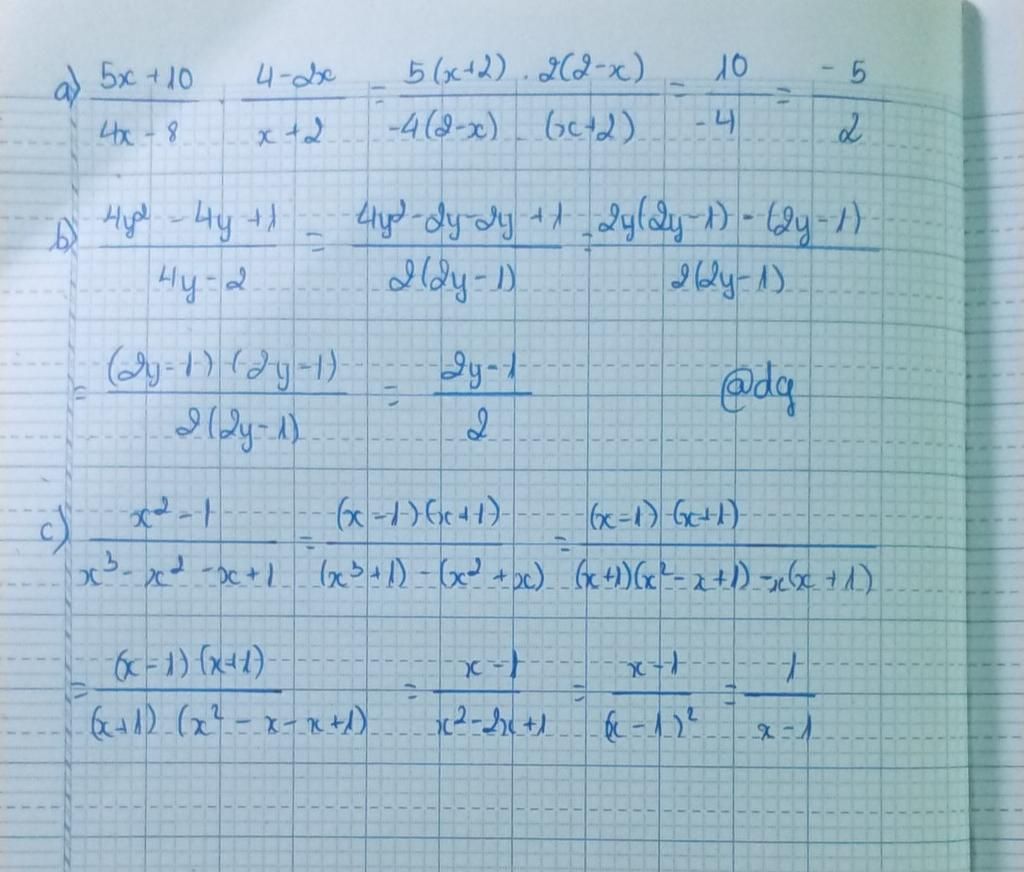 a) (5x + 10)/(4x - 8) . (4 - 2x)/(x + 2) = (5(x+2) . 2(2-x))/(-4(2-x) . (x+2)) = 10/-4 = -5/2
b) (4y² - 4y + 1)/(4y - 2) = (4y² - 2y - 2y + 1)/(2(2y - 1)) = (2y(2y - 1) - (2y - 1))/(2(2y - 1))
= ((2y - 1)(2y - 1))/(2(2y - 1)) = (2y - 1)/2 @dg
c) (x² - 1)/(x³ - x² - x + 1) = ((x - 1)(x + 1))/((x³ + 1) - (x² + x)) = ((x - 1)(x + 1))/((x + 1)(x² - x + 1) - x(x + 1))
= ((x - 1)(x + 1))/((x + 1)(x² - x - x + 1)) = (x - 1)/(x² - 2x + 1) = (x - 1)/(x - 1)² = 1/(x - 1)